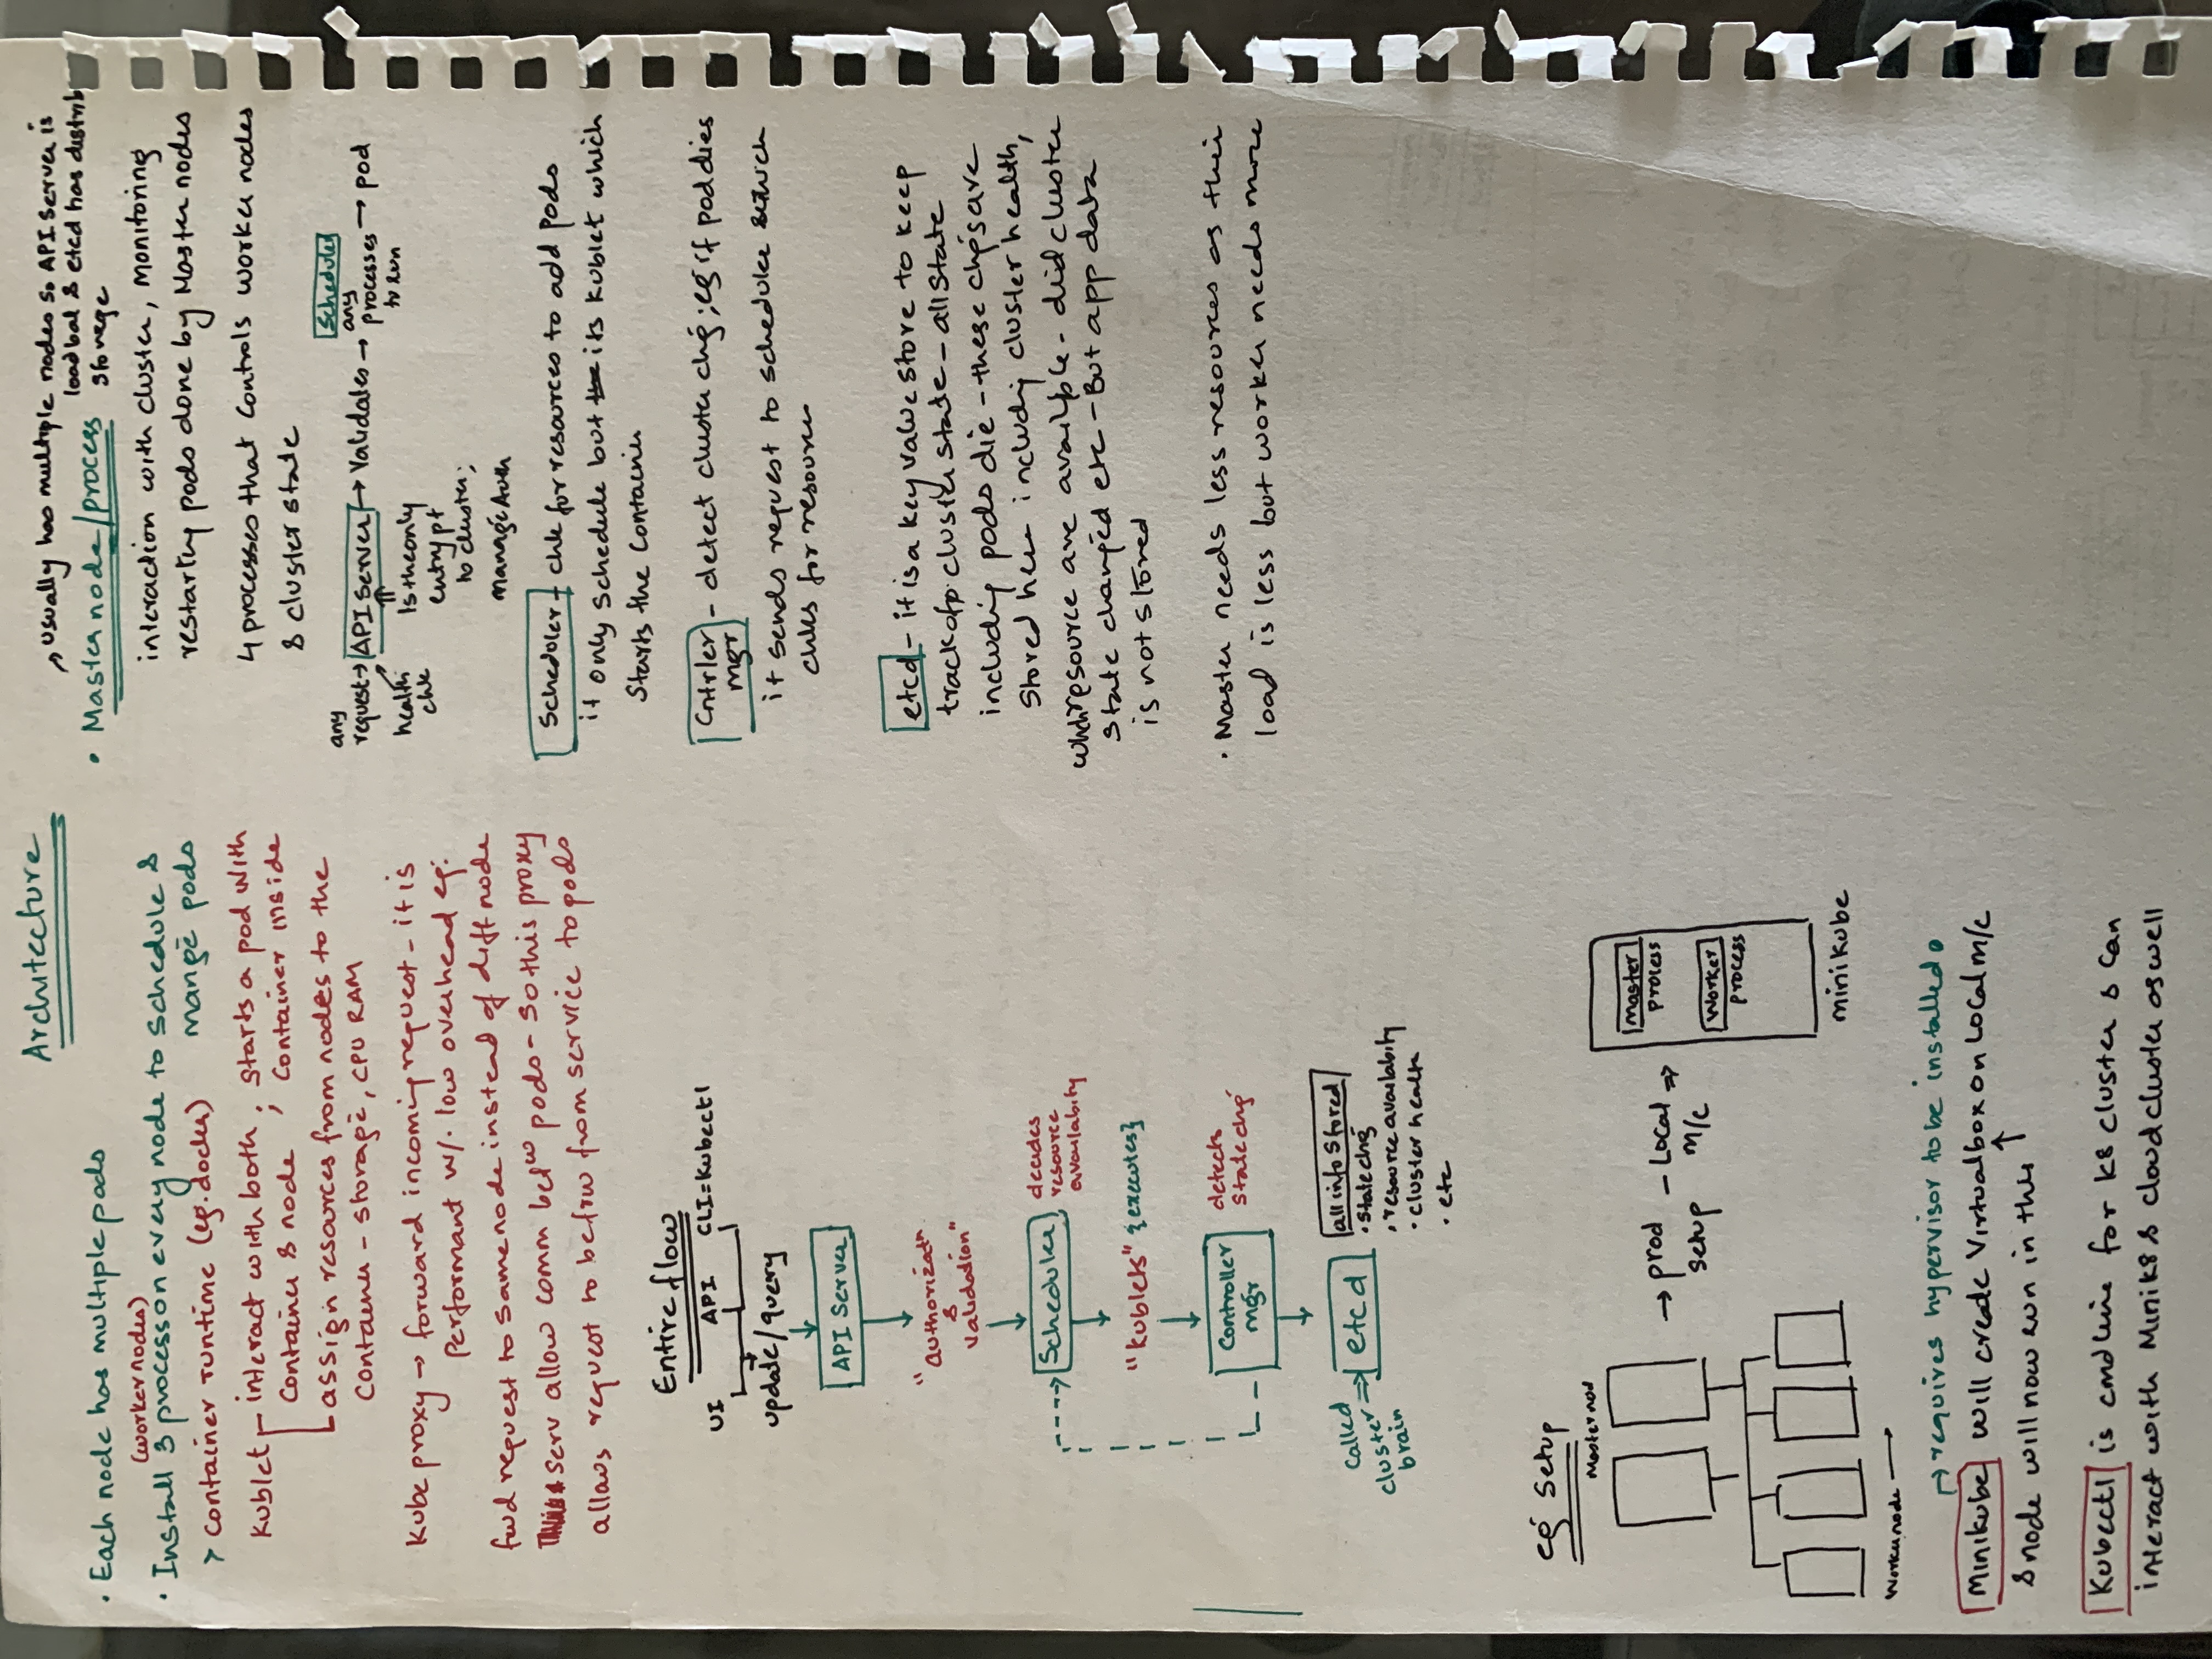 Architecture
• Each node has multiple pods
(worker nodes)
• Install 3 process on every node to schedule &
mange pods
> container runtime (eg. docker)
Kublet - interact with both ; starts a pod with
container & node container inside
assign resources from nodes to the
container - storage, CPU RAM
Kube proxy → forward incoming request - it is
Performant w/. low overhead eg:
fwd request to same node instead of diff node
serv allow comm betw pods - so this proxy
allows request to be frw from service to pods
Entire flow
UI API CLI = Kubectl
update/query
API Server
"Authorizatn
&
validation"
Scheduler
decides
resource
availabity
"Kublets" {executes}
Controller
mgr
detects
state chg
called
cluster
brain
⇒ etcd
all info stored
• state chg
• resource availabity
• cluster health
• etc
eg Setup
Master nod
→ prod
setup
- Local ⇒
m/c
master
process
Worker
process
minikube
Worker node →
→ requires hypervisor to be installed
Minikube will create Virtualbox on Local m/c
& node will now run in this ↑
Kubectl is cmdline for K8 cluster & can
interact with Minik8 & cloud cluster as well
→ usually has multiple nodes so API server is
load bal & etcd has distrib
storage
• Master node/process
interaction with cluster, monitoring
restarting pods done by Master nodes
4 processes that controls worker nodes
& cluster state
any
request → API Server → Validates → Scheduler any processes to run → pod
health
chk
Is the only
entry pt
to cluster;
manage Auth
Scheduler - chk for resources to add pods
it only schedule but its Kublet which
starts the container
Cntrler
mgr - detect cluster chg; eg if pod dies
it sends request to scheduler which
chks for resource
etcd - it is a key value store to keep
track of cluster state - all state
including pods die - these chgs are
stored here including cluster health,
which resource are availble - did cluster
state changed etc - But app data
is not stored
• Master needs less resources as their
load is less but worker needs more